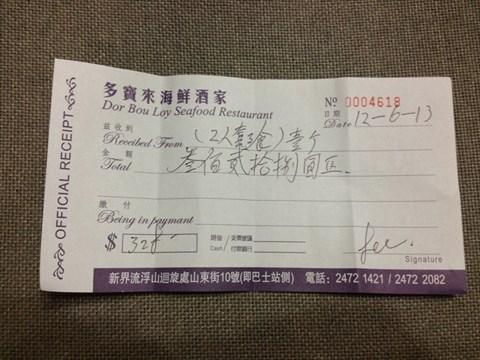 OFFICIAL RECEIPT
多寶來海鮮酒家
Dor Bou Loy Seafood Restaurant
Nº 0004618
日期
Date 12-6-13
茲收到
Receibed From (2人套食) 壹个
金額
Total 叁佰贰拾捌圓正.
繳付
Being in paymant
$ 328-
現金/支票號碼
Cash/付款銀行
Signature
新界流浮山迴旋處山東街10號(即巴士站側) 電話：2472 1421 / 2472 2082